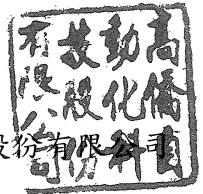 高僑自
動化科
技股份
有限公司
股份有限公司